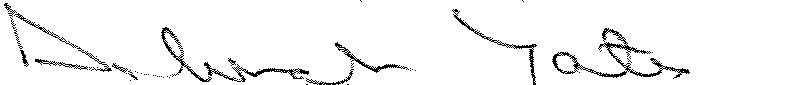 Deborah Yates